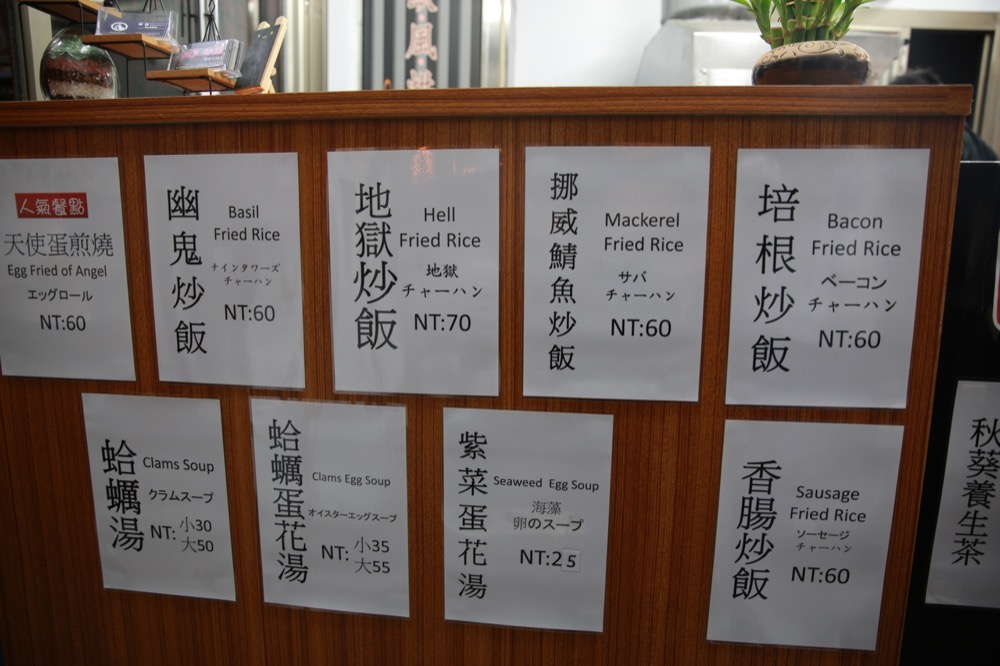 人氣餐點
天使蛋煎燒
Egg Fried of Angel
エッグロール
NT:60
幽鬼炒飯
Basil
Fried Rice
ナインタワーズ
チャーハン
NT:60
地獄炒飯
Hell
Fried Rice
地獄
チャーハン
NT:70
挪威鯖魚炒飯
Mackerel
Fried Rice
サバ
チャーハン
NT:60
培根炒飯
Bacon
Fried Rice
ベーコン
チャーハン
NT:60
蛤蠣湯
Clams Soup
クラムスープ
NT: 小30
大50
蛤蠣蛋花湯
Clams Egg Soup
オイスターエッグスープ
NT: 小35
大55
紫菜蛋花湯
Seaweed Egg Soup
海藻
卵のスープ
NT:25
香腸炒飯
Sausage
Fried Rice
ソーセージ
チャーハン
NT:60
秋葵養生茶